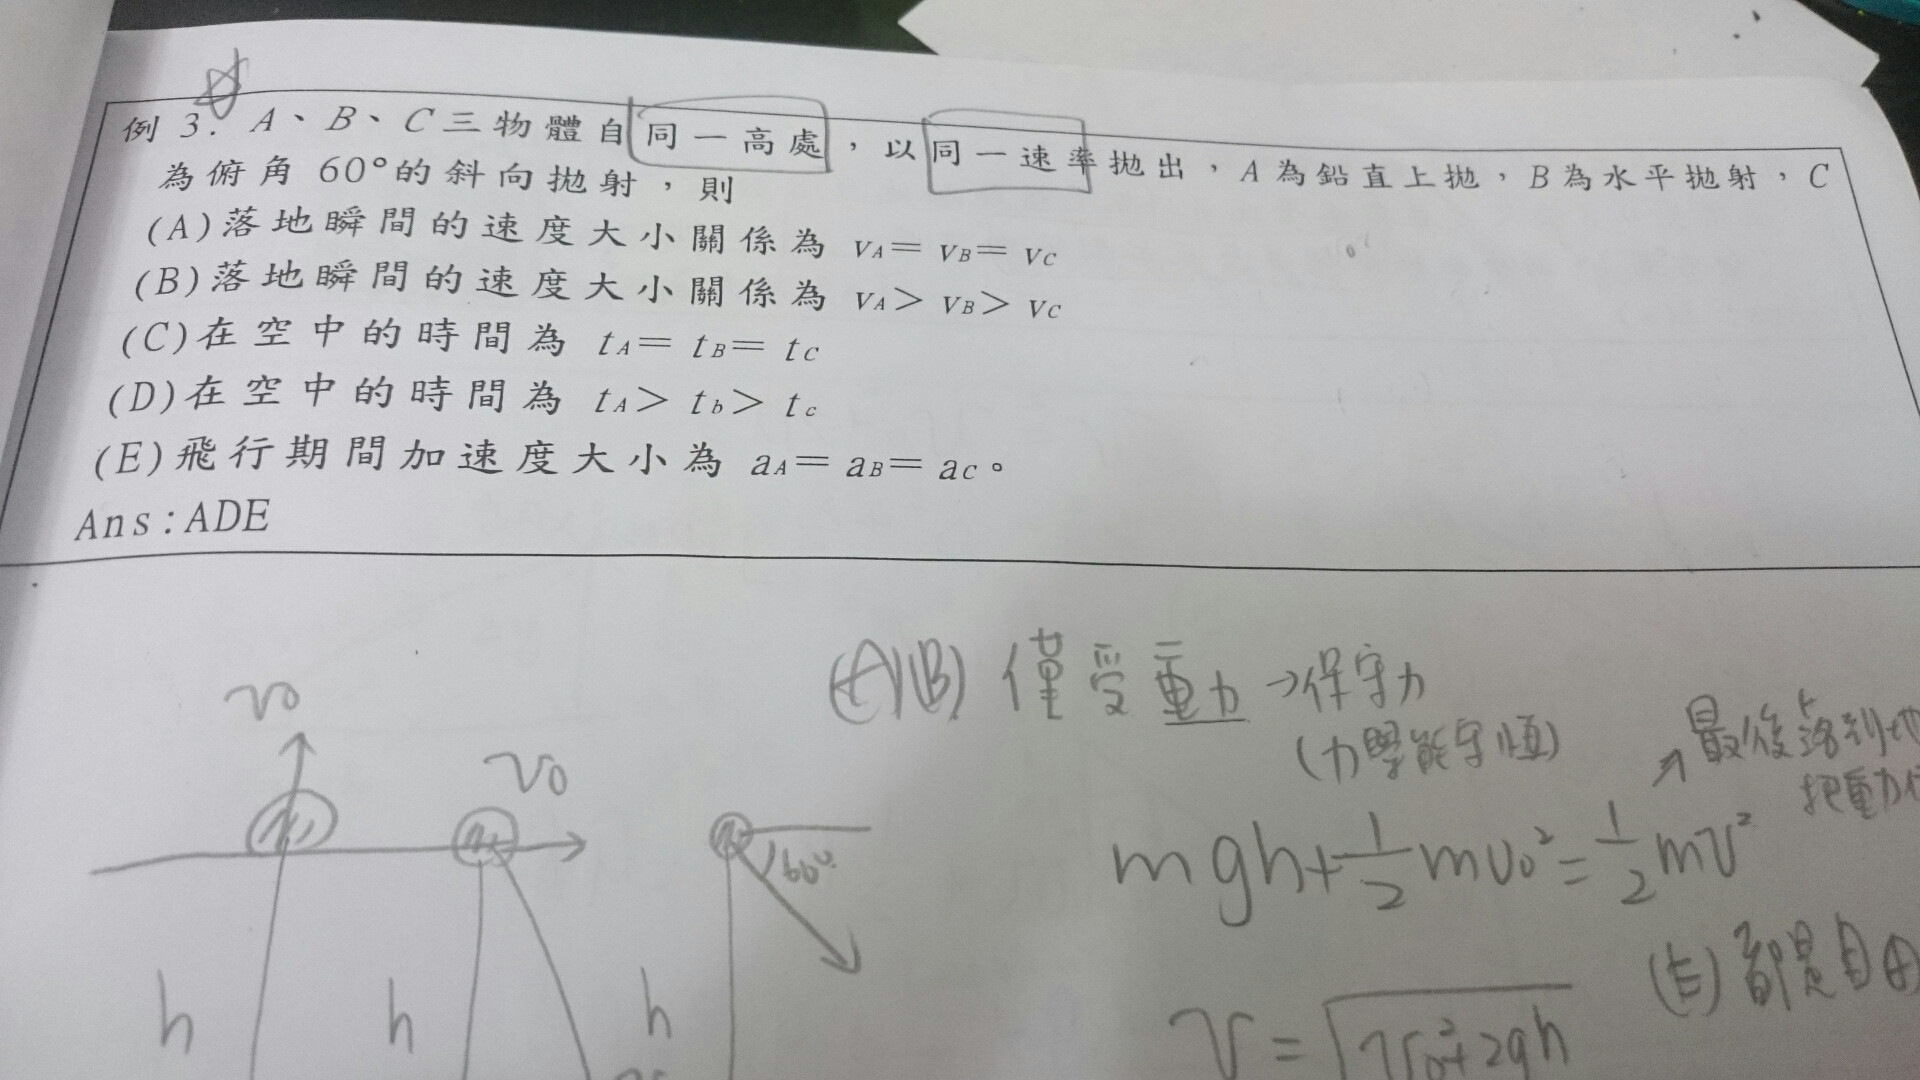 例 3. A、B、C三物體自同一高處，以同一速率拋出，A為鉛直上拋，B為水平拋射，C
為俯角 60°的斜向拋射，則
(A)落地瞬間的速度大小關係為 vA＝ vB＝ vC
(B)落地瞬間的速度大小關係為 vA＞ vB＞ vC
(C)在空中的時間為 tA＝ tB＝ tC
(D)在空中的時間為 tA＞ tb＞ tc
(E)飛行期間加速度大小為 aA＝ aB＝ aC。
Ans:ADE
(A)(B) 僅受重力→保守力
(力學能守恆)
↗最後落到地
把重力
mgh+1/2mv0²=1/2mv²
(E) 都是自由
v=√v0²+2gh
v0
v0
60°
h
h
h